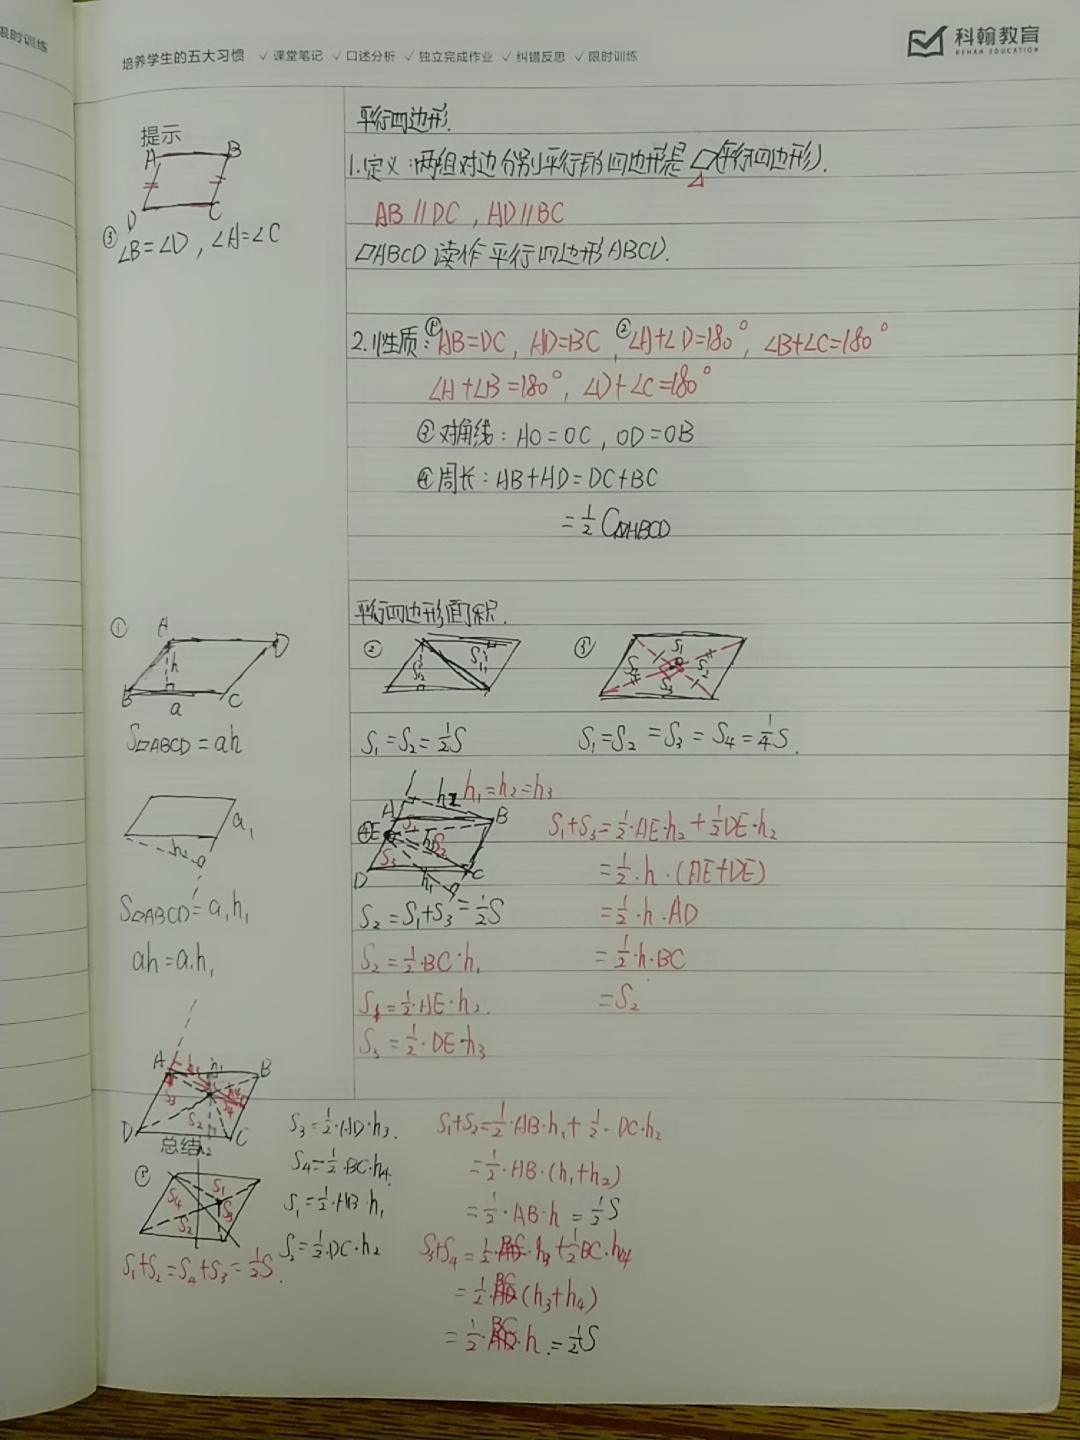 限时训练
培养学生的五大习惯 ✓课堂笔记 ✓口述分析 ✓独立完成作业 ✓纠错反思 ✓限时训练
科翰教育
KEHAN EDUCATION
提示
A B
D C
③ ∠B=∠D，∠A=∠C
平行四边形.
1.定义：两组对边分别平行的四边形是▱(平行四边形).
AB∥DC，AD∥BC
▱ABCD 读作 平行四边形ABCD.
2.性质：①AB=DC，AD=BC，②∠A+∠D=180°，∠B+∠C=180°
∠A+∠B=180°，∠D+∠C=180°
③对角线：AO=OC，OD=OB
④周长：AB+AD=DC+BC
=½C▱ABCD
平行四边形面积.
① A D
h
B a C
S▱ABCD=ah
a₁
h₁
S▱ABCD=a₁h₁
ah=a₁h₁
② S₂ S₁
S₁=S₂=½S
③ S₁ S₂ S₃ S₄
S₁=S₂=S₃=S₄=¼S.
h₁=h₂=h₃
④ A h₂ B
E S₁ h S₂
D S₃ h₁ C
S₂=S₁+S₃=½S
S₂=½·BC·h₁
S₁=½·AE·h₂.
S₃=½·DE·h₃
S₁+S₃=½·AE·h₂+½DE·h₂
=½·h·(AE+DE)
=½·h·AD
=½·h·BC
=S₂
A h₃ h₁ B
S₃ h₄ S₄
D S₂ h₂ C
总结
⑤ S₁ S₄ S₃ S₂
S₁+S₂=S₄+S₃=½S.
S₃=½·AD·h₃.
S₄=½·BC·h₄.
S₁=½·AB·h₁
S₂=½·DC·h₂
S₁+S₂=½·AB·h₁+½·DC·h₂
=½·AB·(h₁+h₂)
=½·AB·h=½S
S₃+S₄=½·BC·h₃+½BC·h₄
=½·BC(h₃+h₄)
=½·BC·h.=½S